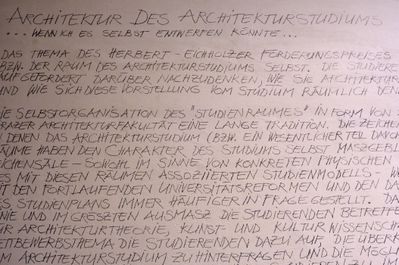 ARCHITEKTUR DES ARCHITEKTURSTUDIUMS
...WENN ICH ES SELBST ENTWERFEN KÖNNTE...
DAS THEMA DES HERBERT-EICHHOLZER FÖRDERUNGSPREISES
BZW. DER RAUM DES ARCHITEKTURSTUDIUMS SELBST. DIE STUDIERE
AUFGEFORDERT DARÜBER NACHZUDENKEN, WIE SIE ARCHITEKTUR
UND WIE SICH DIESE VORSTELLUNG VOM STUDIUM RÄUMLICH DEN
IE SELBSTORGANISATION DES "STUDIENRAUMES" IN FORM VON Z
RAZER ARCHITEKTURFAKULTÄT EINE LANGE TRADITION. DIE ZEICHE
DENEN DAS ARCHITEKTURSTUDIUM (BZW. EIN WESENTLICHER TEIL DAVO
ÄUME HABEN DEN CHARAKTER DES STUDIUMS SELBST MASZGEBL
ICHENSÄLE - SOWOHL IM SINNE VON KONKRETEN PHYSISCHEN
ES MIT DIESEN RÄUMEN ASSOZIIERTEN STUDIENMODELLS - W
T DEN FORTLAUFENDEN UNIVERSITÄTSREFORMEN UND DEN DA
S STUDIENPLANS IMMER HÄUFIGER IN FRAGE GESTELLT. DA
NIE UND IM GRÖSZTEN AUSMASZ DIE STUDIERENDEN BETREFFE
ÜR ARCHITEKTURTHEORIE, KUNST- UND KULTURWISSENSCH
ETTBEWERBSTHEMA DIE STUDIERENDEN DAZU AUF, DIE ÜBERK
M ARCHITEKTURSTUDIUM ZU HINTERFRAGEN UND DIE MÖGL